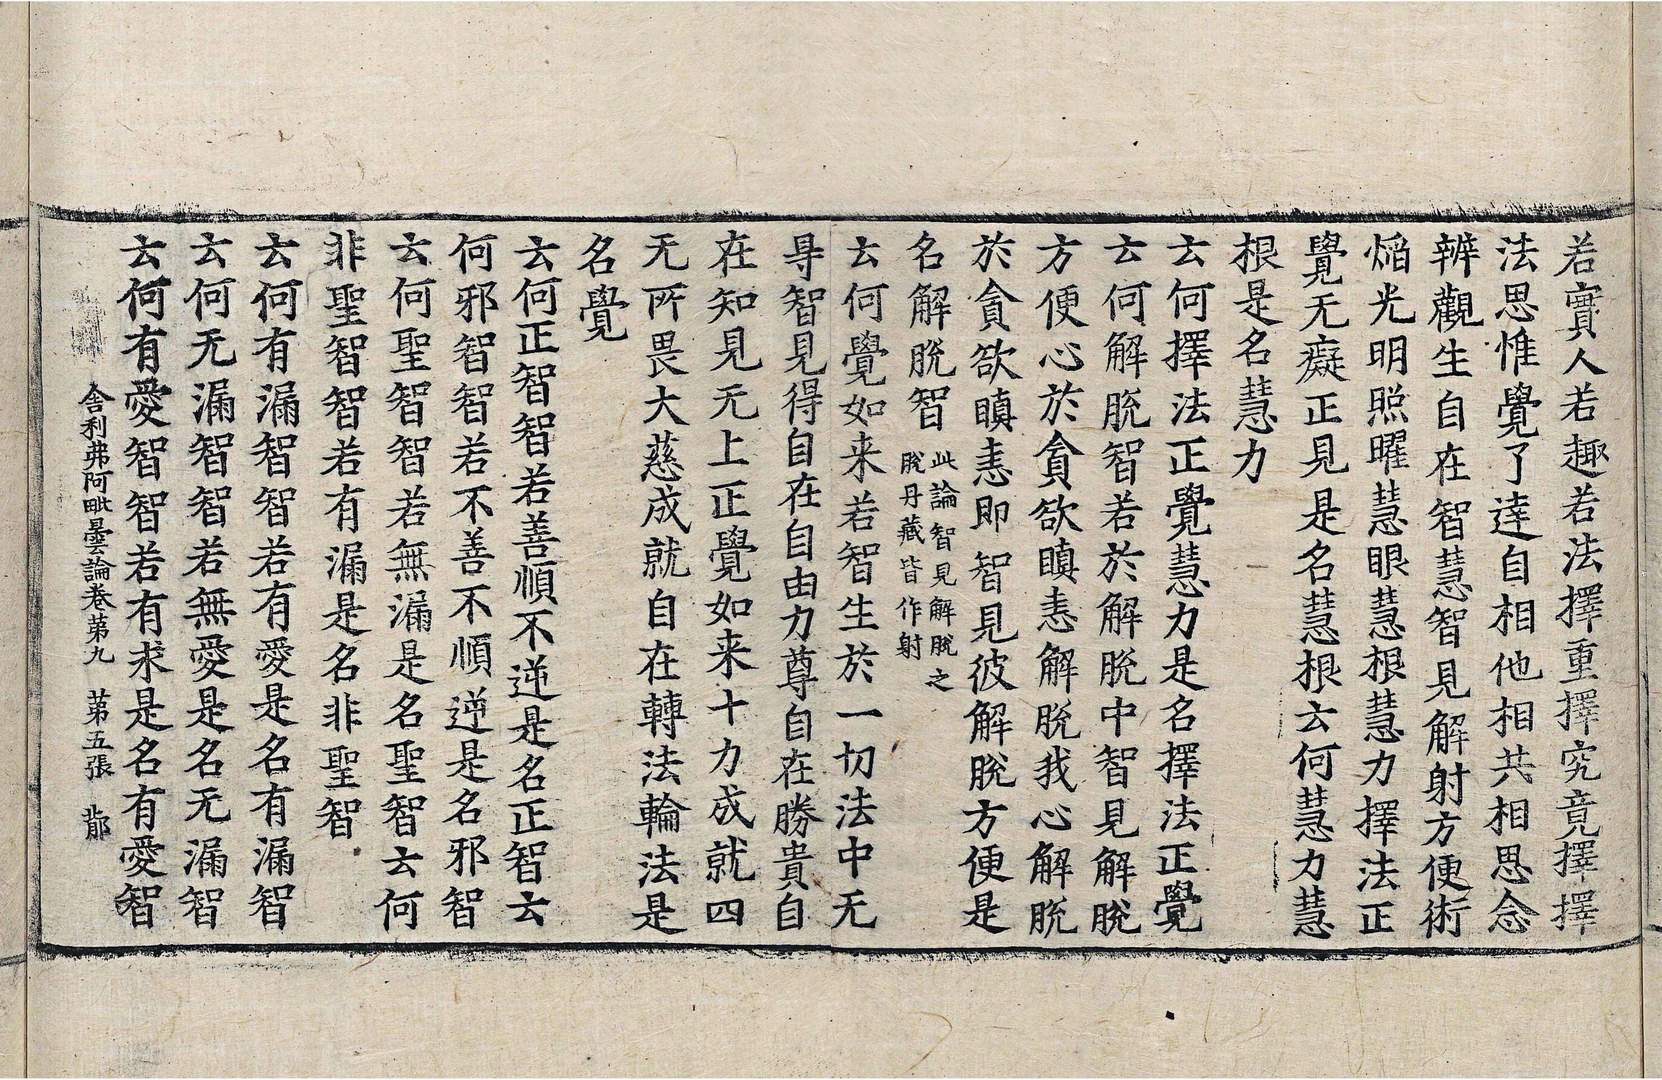 若實人若趣若法擇重擇究竟擇擇
法思惟覺了達自相他相共相思念
辨觀生自在智慧智見解射方便術
焰光明照曜慧眼慧根慧力擇法正
覺无癡正見是名慧根云何慧力慧
根是名慧力
云何擇法正覺慧力是名擇法正覺
云何解脫智若於解脫中智見解脫
方便心於貪欲瞋恚解脫我心解脫
於貪欲瞋恚即智見彼解脫方便是
名解脫智此論智見解脫之
脫丹藏皆作射
云何覺如来若智生於一切法中无
㝵智見得自在自由力尊自在勝貴自
在知見无上正覺如来十力成就四
无所畏大慈成就自在轉法輪法是
名覺
云何正智智若善順不逆是名正智云
何邪智智若不善不順逆是名邪智
云何聖智智若無漏是名聖智云何
非聖智智若有漏是名非聖智
云何有漏智智若有愛是名有漏智
云何无漏智智若無愛是名无漏智
云何有愛智智若有求是名有愛智
舍利弗阿毗曇論卷第九 第五張